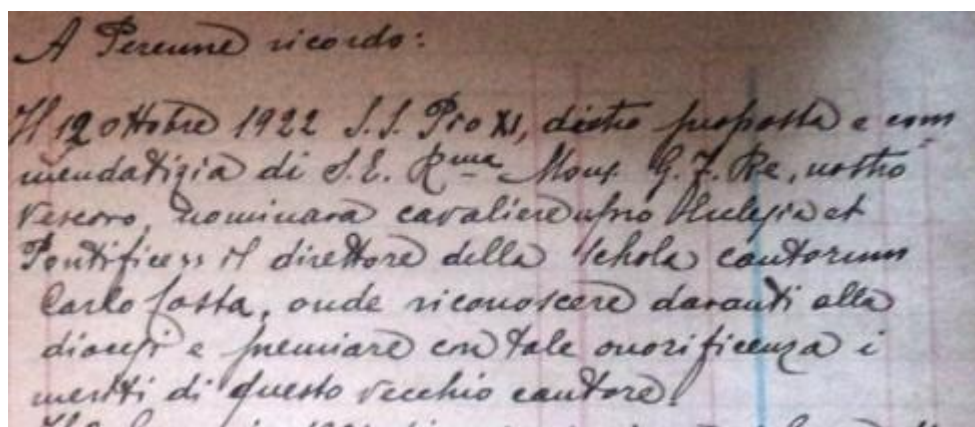 A Perenne ricordo:
Il 12 ottobre 1922 S.S. Pio XI, dietro proposta e com
mendatizia di S.E. Rma Mons. G. F. Re, nostro
Vescovo, nominava cavaliere "pro Ecclesia et
Pontifice" il direttore della Schola cantorum
Carlo Costa, onde riconoscere davanti alla
diocesi e premiare con tale onorificenza i
meriti di questo vecchio cantore.